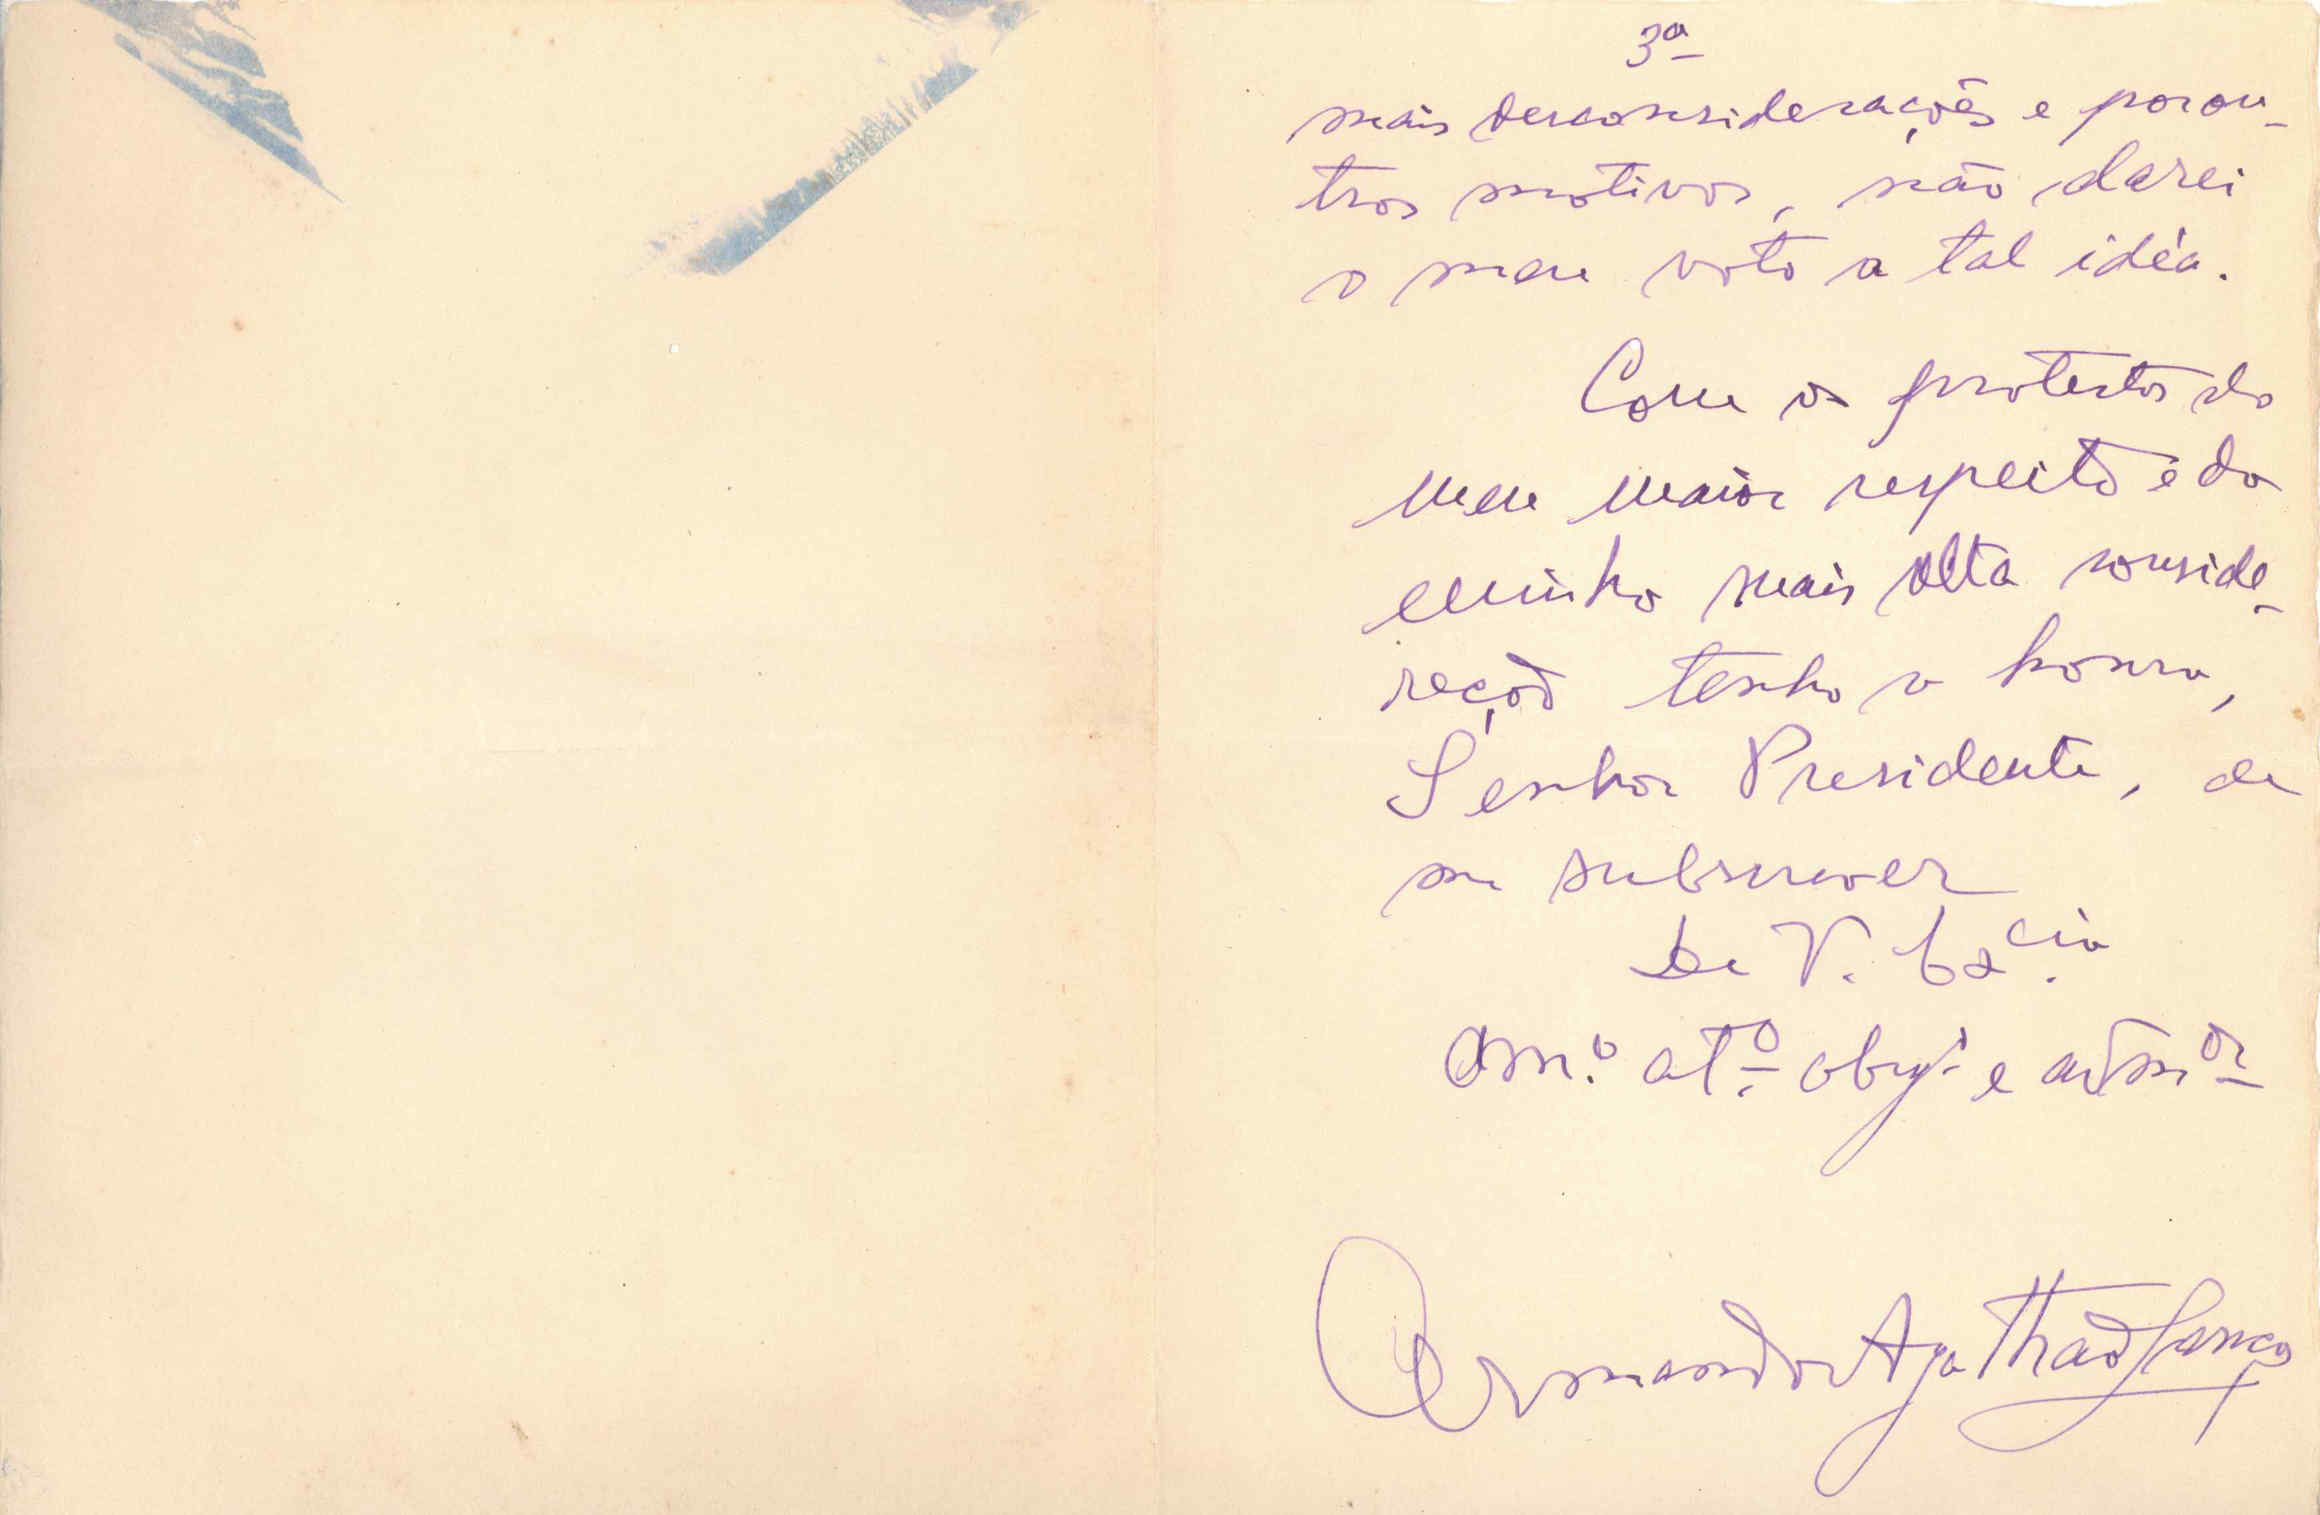 3ª
mais desconsiderações e porou-
tros motivos, não darei
o meu voto a tal idéa.
Com os protestos do
meu maior respeito e da
minha mais alta conside-
reção tenho a honra,
Senhor Presidente, de
me subscrever
De V. Excia.
Amº. atº. obrgº e admor
Armando Agathão Lança